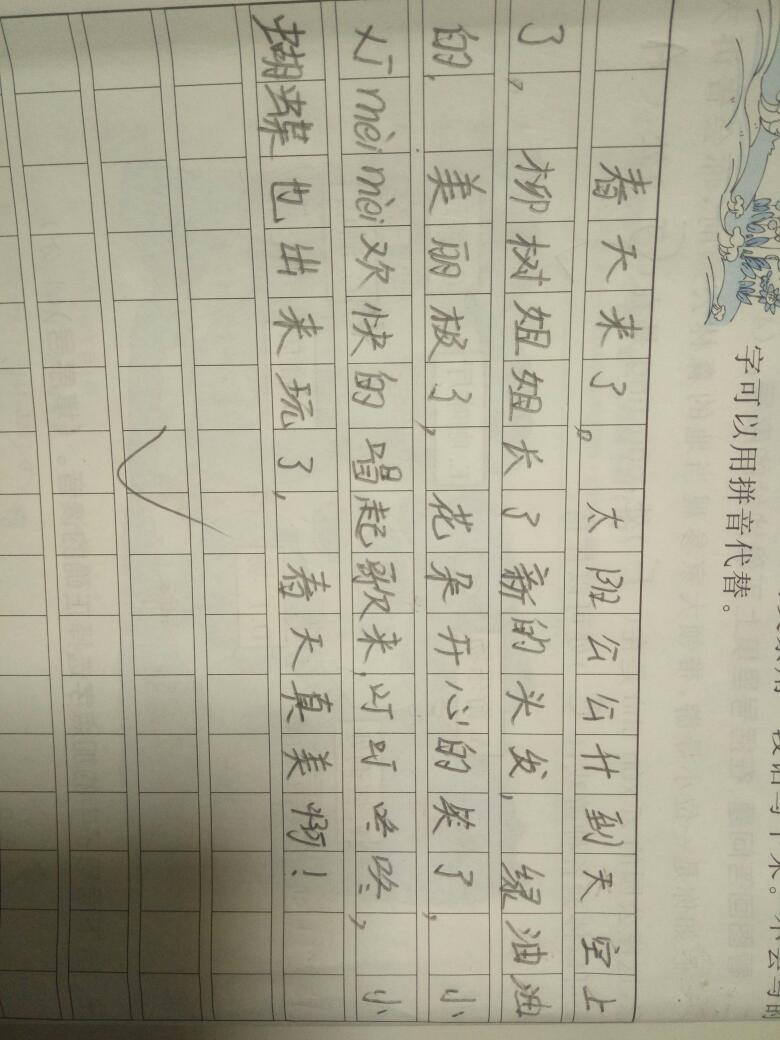 段话写下来。不会写的
字可以用拼音代替。
春天来了。太阳公公什到天空上
了。柳树姐姐长了新的头发，绿油油
的，美丽极了，花朵开心的笑了，小
mèi mèi欢快的唱起歌来，叮叮咚咚，小
蝴蝶也出来玩了，春天真美啊！